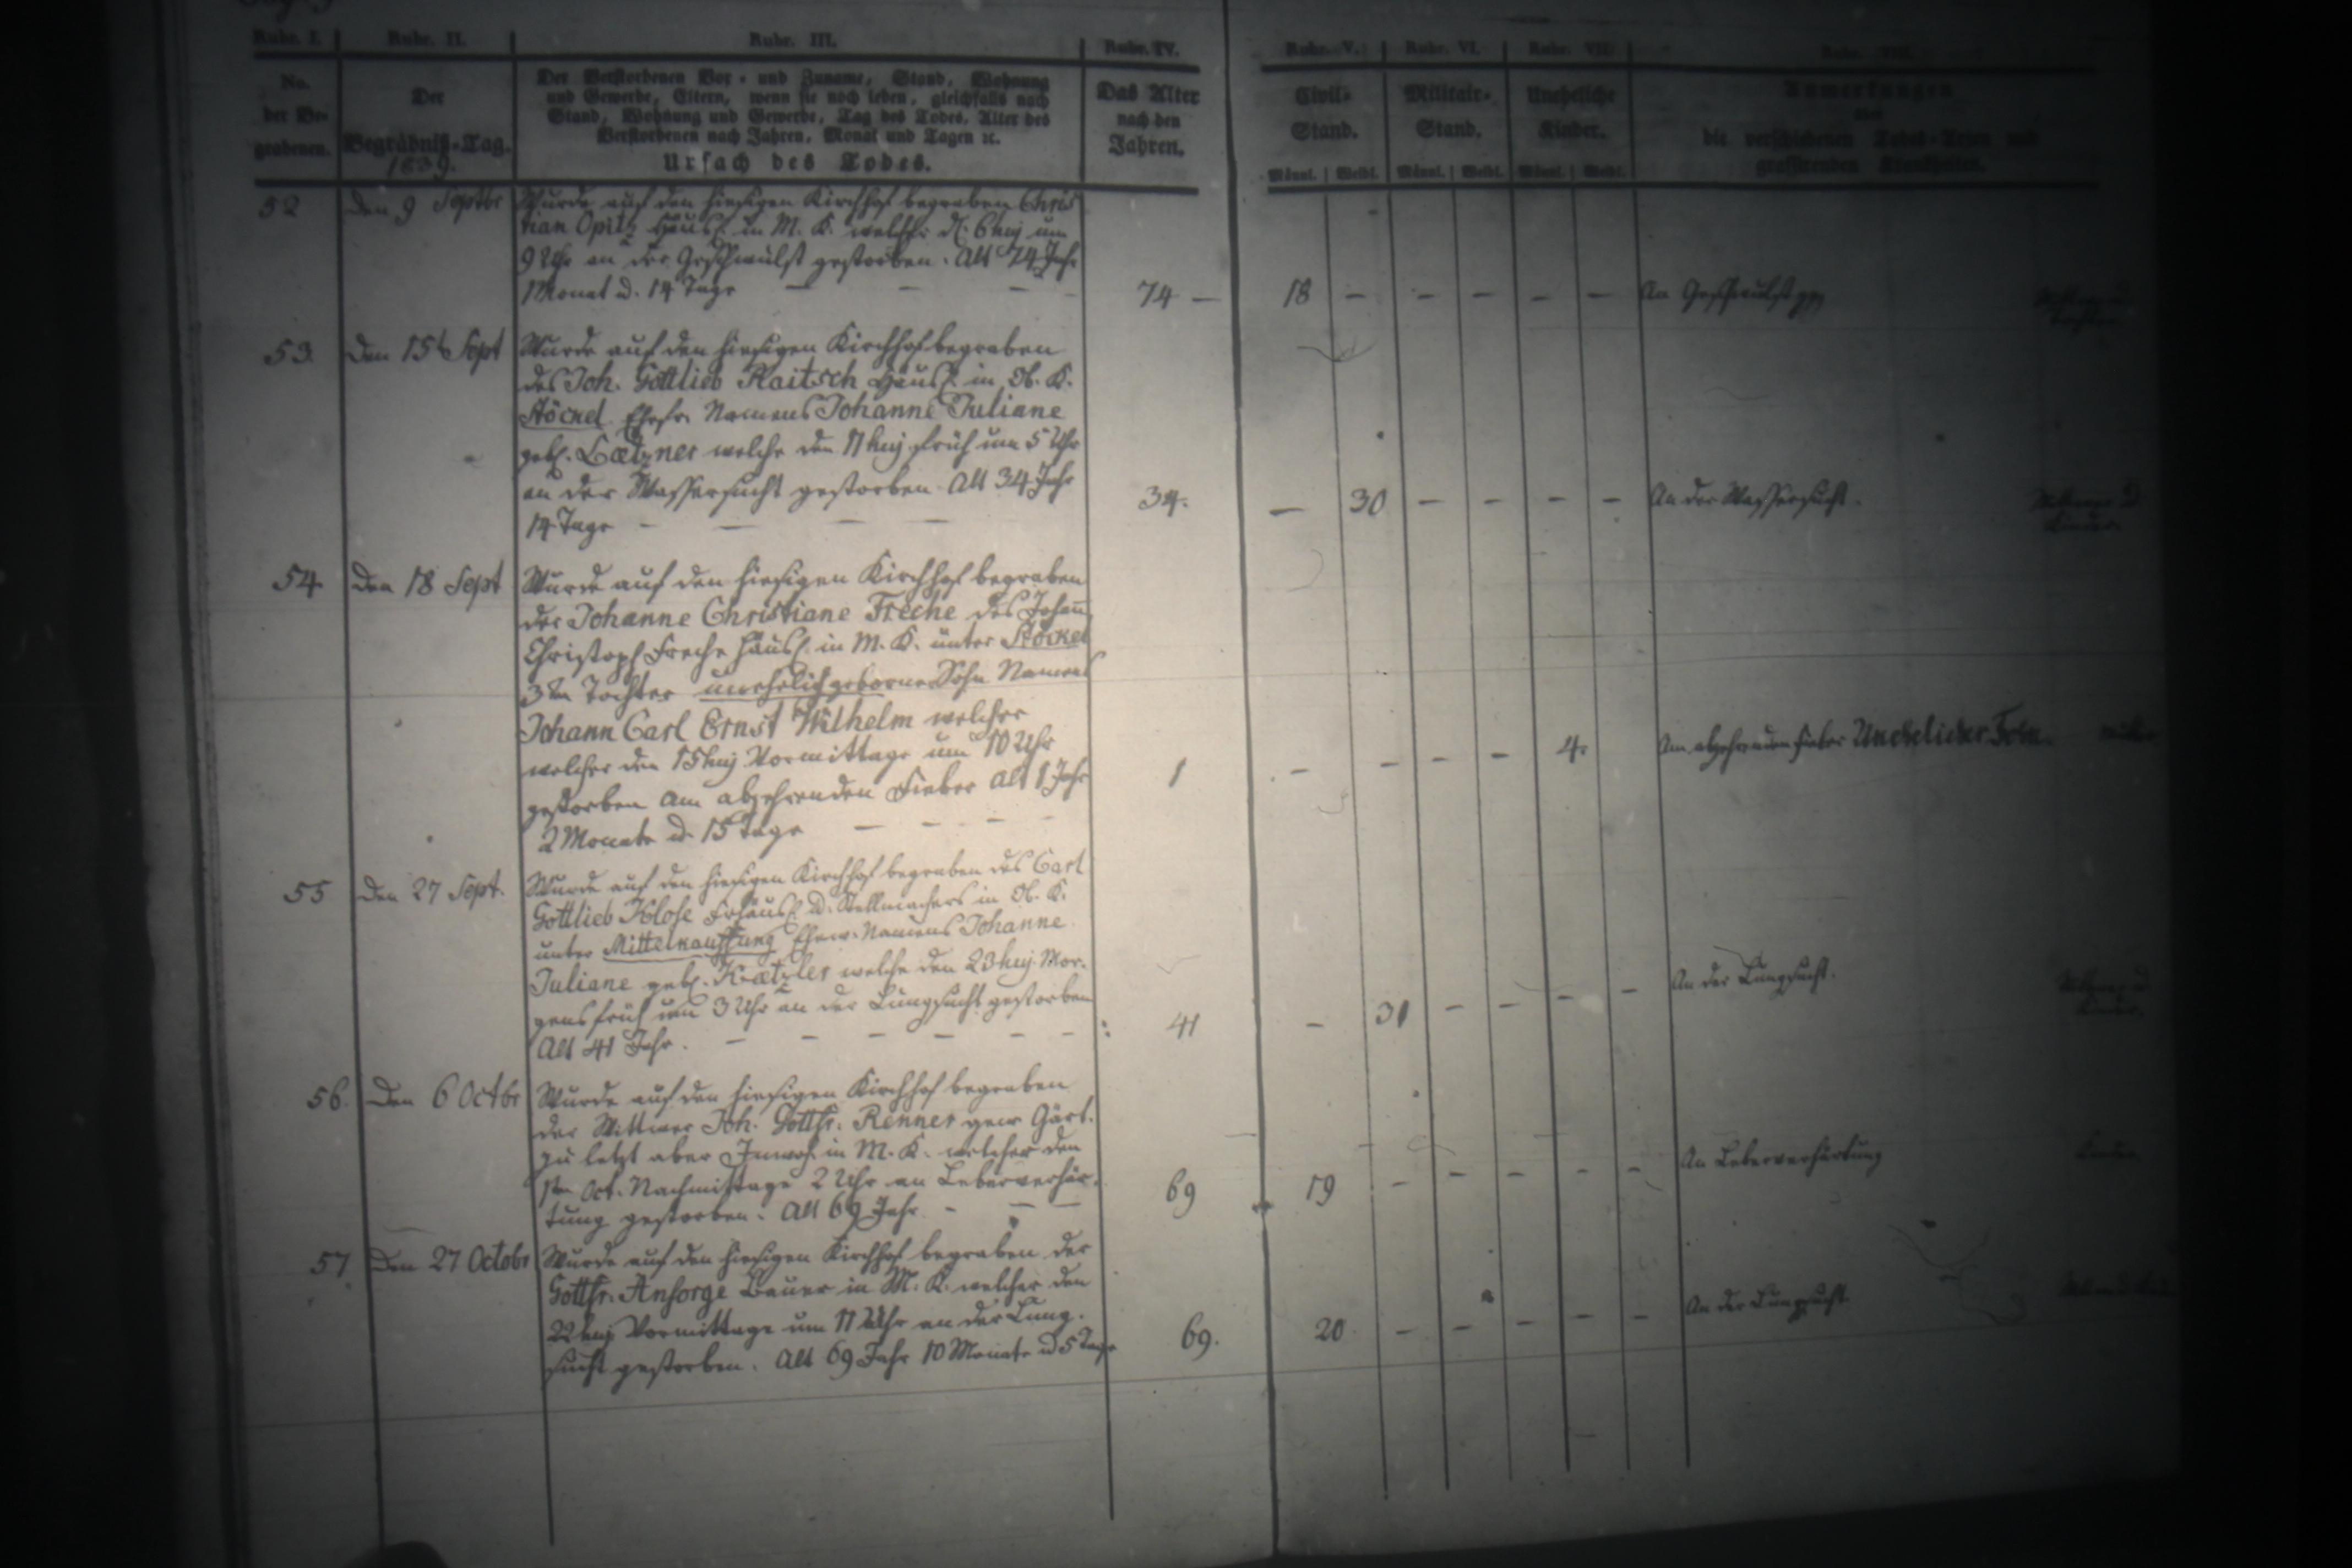 Rubr. I. Rubr. II. Rubr. III. Rubr. IV. Rubr. V. Rubr. VI. Rubr. VII.
No. der Begrabenen.
Der Begräbniß-Tag. 1839.
Der Verstorbenen Vor- und Zuname, Stand, Wohnung
und Gewerbe, Eltern, wenn sie noch leben, gleichfalls nach
Stand, Wohnung und Gewerbe, Tag des Todes, Alter des
Verstorbenen nach Jahren, Monat und Tagen ꝛc.
Ursach des Todes.
Das Alter nach den Jahren.
Civil-Stand.
Militair-Stand.
Uneheliche Kinder.
Anmerkungen
über
die verschiedenen Todes-Arten und
grassirenden Krankheiten.
Männl. Weibl. Männl. Weibl. Männl. Weibl.
52 den 9 Septbr Wurde auf den hiesigen Kirchhof begraben Chris
tian Opitz Häusl. in M. K. welcher d. 6 huj um
9 Uhr an der Geschwulst gestorben. Alt 74 Jahr
1 Monat u. 14 Tage — — — 74 — 18 — — — — — An Geschwulst
53. Den 15t Sept Wurde auf den hiesigen Kirchhof begraben
des Joh. Gottlieb Raitsch Häusl. in Ob. K.
Stöckel Ehefr. Namens Johanne Juliane
geb. Lætzner welche den 11 huj früh um 5 Uhr
an der Wassersucht gestorben Alt 34 Jahr
14 Tage — — — — 34. — 30 — — — — An der Wassersucht.
54. Den 18 Sept Wurde auf den hiesigen Kirchhof begraben
der Johanne Christiane Freche des Johann
Christoph Freche Häusl. in M. K. unter Stöckel
3ten Tochter unehelich geborner Sohn Namens
Johann Carl Ernst Wilhelm welcher
welcher den 15 huj Vormittags um 10 Uhr
gestorben am abzehrenden Fieber Alt 1 Jahr
2 Monate u. 15 Tage — — — — 1 — — — — 4. Am abzehrenden Fieber
55 Den 27 Sept. Wurde auf den hiesigen Kirchhof begraben des Carl
Gottlieb Klose Frhäusl. u. Stellmachers in Ob. K.
unter Mittelkauffung Ehew. Namens Johanne
Juliane geb. Kætzler welche den 23 huj Mor-
gens früh um 3 Uhr an der Lungsucht gestorben
Alt 41 Jahr. — — — — — — 41 — 31 — — — — An der Lungsucht.
56. Den 6 Octbr Wurde auf den hiesigen Kirchhof begraben
der Wittwer Joh. Gottfr. Renner gew Gärt.
zu letzt aber Inwoh. in M. K. welcher den
1ten Oct. Nachmittags 2 Uhr an Leberverhär-
tung gestorben. Alt 69 Jahr - — — 69 19 — — — — — An Leberverhärtung
57 Den 27 Octobr Wurde auf den hiesigen Kirchhof begraben der
Gottfr. Ansorge Bauer in M. K. welcher den
22 huj Vormittags um 11 Uhr an der Lung-
sucht gestorben. Alt 69 Jahr 10 Monate u 5 Tage 69. 20 — — — — — An der Lungsucht